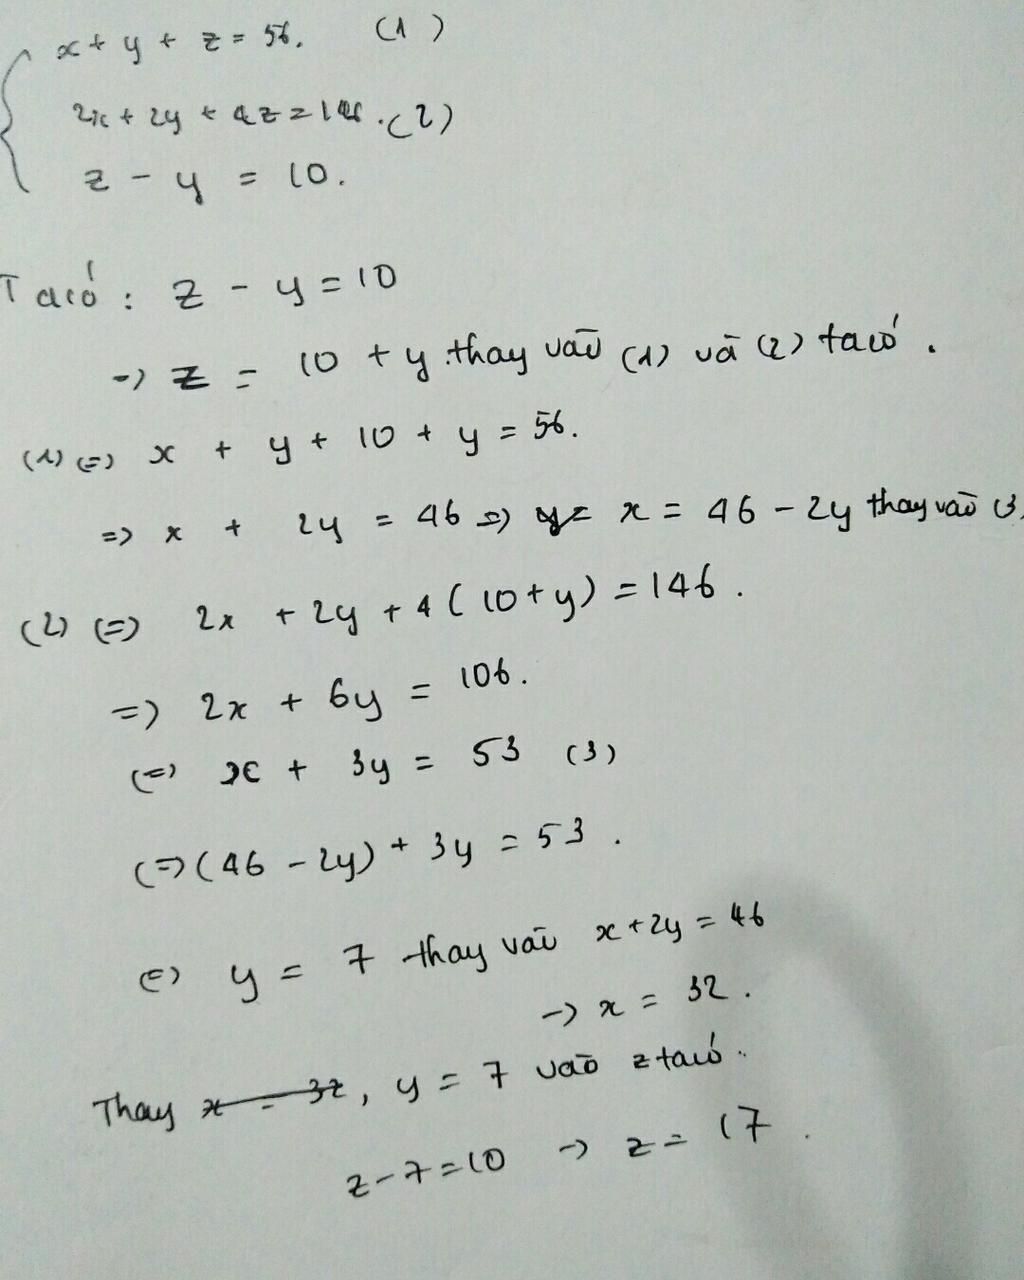 x + y + z = 56. (1)
2x + 2y + 4z = 146. (2)
z - y = 10.
Ta có : z - y = 10
-> z = 10 + y thay vào (1) và (2) ta có.
(1) (=) x + y + 10 + y = 56.
=> x + 2y = 46 => x = 46 - 2y thay vào (3)
(2) (=) 2x + 2y + 4(10+y) = 146.
=) 2x + 6y = 106.
(=) x + 3y = 53 (3)
(=) (46 - 2y) + 3y = 53.
(=) y = 7 thay vào x + 2y = 46
-> x = 32.
Thay x = 32, y = 7 vào z ta có.
z - 7 = 10 -> z = 17.